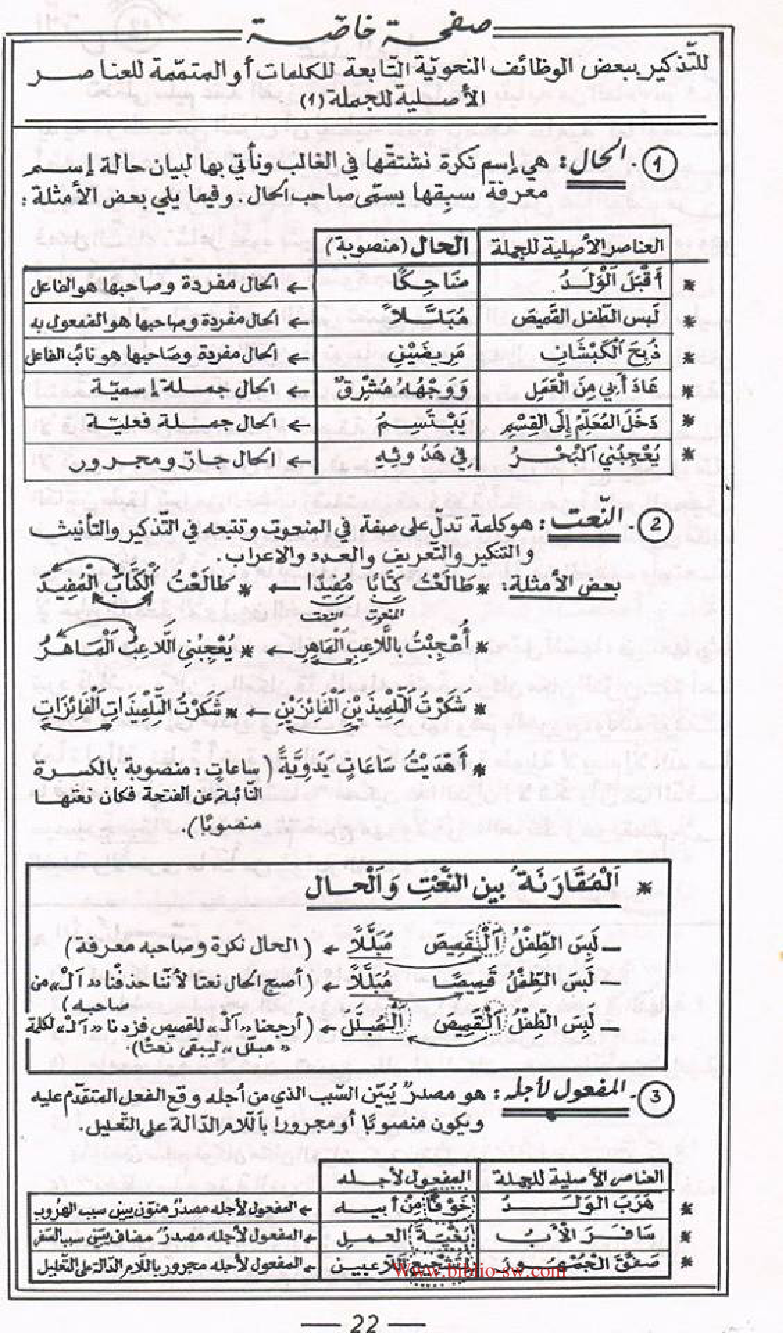 صفحة خاصة
للتذكير ببعض الوظائف النحوية التابعة للكلمات أو المتممة للعناصر
الأصلية للجملة (1)
1. الحال : هي إسم نكرة نشتقها في الغالب ونأتي بها لبيان حالة إسم
معرفة سبقها يسمّى صاحب الحال. وفيما يلي بعض الأمثلة :
العناصر الأصلية للجملة الحال (منصوبة)
* أَقْبَلَ الْوَلَدُ ضَاحِكًا ← الحال مفردة وصاحبها هو الفاعل
* لَبِسَ الطِّفْلُ القَمِيصَ مُبَلَّلاً ← الحال مفردة وصاحبها هو المفعول به
* ذُبِحَ الْكَبْشَانِ مَرِيضَيْنِ ← الحال مفردة وصاحبها هو نائب الفاعل
* عَادَ أَبِي مِنَ الْعَمَلِ وَوَجْهُهُ مُشْرِقٌ ← الحال جملة إسمية
* دَخَلَ المُعَلِّمُ إِلَى القِسْمِ يَبْتَسِمُ ← الحال جملة فعلية
* يُعْجِبُنِي الْبَحْرُ فِي هُدُوئِهِ ← الحال جارّ ومجرور.
2. النّعت : هو كلمة تدلّ على صفة في المنعوت وتتبعه في التذكير والتأنيث
والتنكير والتعريف والعدد والإعراب.
بعض الأمثلة: * طَالَعْتُ كِتَابًا مُفِيدًا ← * طَالَعْتُ الْكِتَابَ الْمُفِيدَ
المنعوت النعت
* أُعْجِبْتُ بِاللَّاعِبِ الْمَاهِرِ ← * يُعْجِبُنِي اللَّاعِبُ الْمَاهِرُ
* شَكَرْتُ التِّلْمِيذَيْنِ الْفَائِزَيْنِ ← * شَكَرْتُ التِّلْمِيذَاتِ الْفَائِزَاتِ
* أَهْدَيْتُ سَاعَاتٍ يَدَوِيَّةً (ساعاتٍ : منصوبة بالكسرة
النائبة عن الفتحة فكان نعتها
منصوبًا).
* اَلْمُقَارَنَةُ بين النَّعْتِ وَالْحال
– لَبِسَ الطِّفْلُ الْقَمِيصَ مُبَلَّلاً ← (الحال نكرة وصاحبه معرفة)
– لَبِسَ الطِّفْلُ قَمِيصًا مُبَلَّلاً ← (أصبح الحال نعتا لأنّنا حذفنا «الـ» من
صاحبه)
– لَبِسَ الطِّفْلُ الْقَمِيصَ الْمُبَلَّلَ ← (أرجعنا «الـ» للقميص فزدنا «الـ» لكلمة
«مبلّل» ليبقى نعتا).
3. المفعول لأجله : هو مصدرٌ يُبيّن السّبب الذي من أجله وقع الفعل المتقدّم عليه
ويكون منصوبًا أو مجرورا باللّام الدّالة على التّعليل.
العناصر الأصلية للجملة المفعول لأجله
* هَرَبَ الوَلَدُ خَوْفًا مِنْ أَبِيهِ ← المفعول لأجله مصدرٌ منوّن يبيّن سبب الهروب
* سَافَرَ الْأَبُ بُغْيَةَ العمل ← المفعول لأجله مصدرٌ مضاف يبيّن سبب السّفر
* صَفَّقَ الْجُمْهُورُ لِتَشْجِيعِ اللّاعبين ← المفعول لأجله مجرور باللّام الدّالة على التّعليل
www.biblio-sw.com
— 22 —